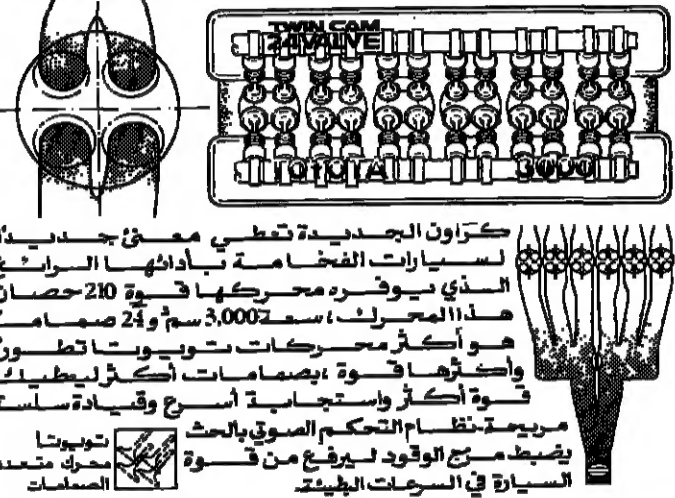 TWIN CAM
24 VALVE
TOYOTA 3000
كراون الجديدة تعطي معنىً جديداً
لسيارات الفخامة بأدائها الرائع
الذي يوفره محركها قوة 210 حصان
هذا المحرك، سعة 3,000 سم٣ و24 صماماً
هو أكثر محركات تويوتا تطوراً
وأكثرها قوة، بصمامات أكثر ليعطيك
قوة أكثر واستجابة أسرع وقيادة سلسة
مريحة. نظام التحكم الصوتي بالحث
يضبط مزج الوقود ليرفع من قوة
السيارة في السرعات البطيئة.
تويوتا
محرك متعدد
الصمامات